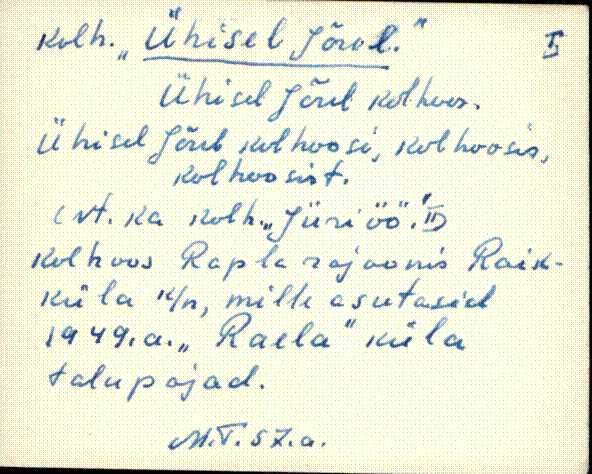 kolh. „Ühisel Jõul." I
Ühisel Jõul kolhoos.
Ühisel Jõul kolhoosi, kolhoosis,
kolhoosist.
(vt. ka kolh. „Jüriöö." II)
kolhoos Rapla rajoonis Raik-
küla k/n, mille asutasid
1949.a. „Raela" küla
talupojad.
M.T. 57.a.